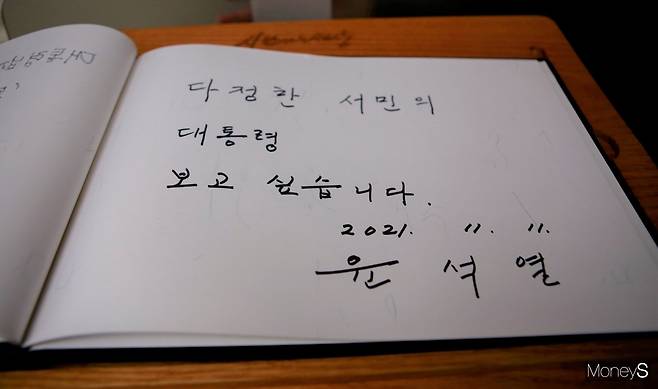 다정한 서민의
대통령
보고 싶습니다.
2021. 11. 11.
윤 석 열
MoneyS